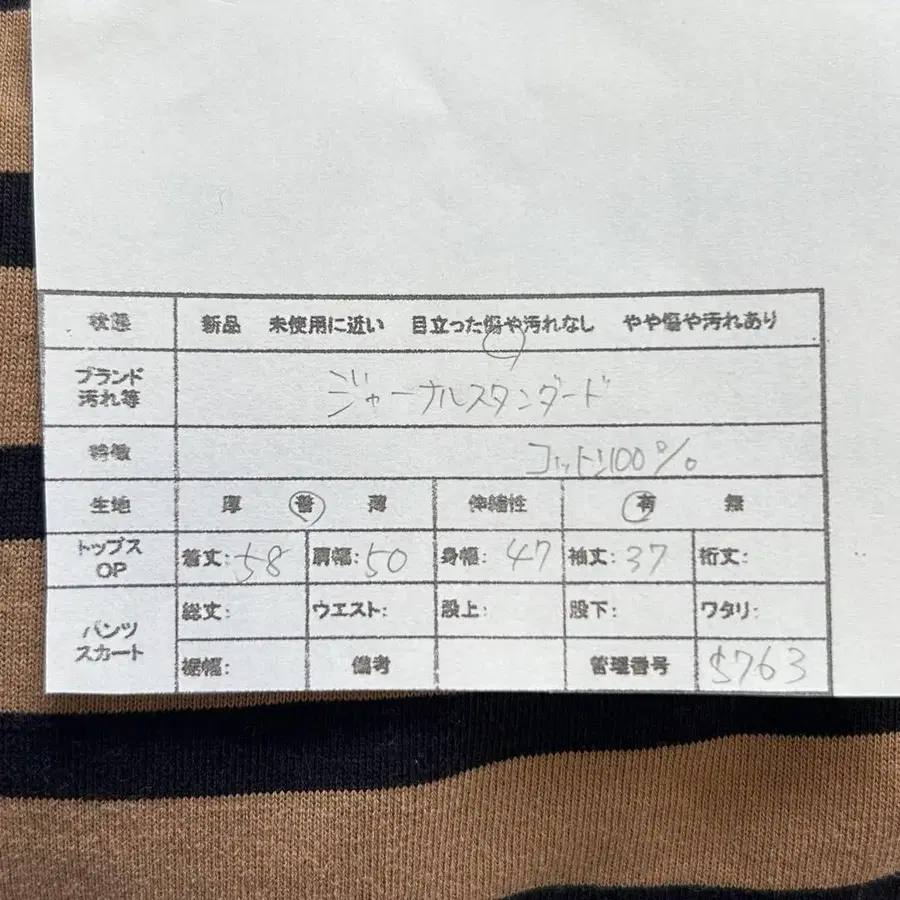 状態 新品 未使用に近い 目立った傷や汚れなし やや傷や汚れあり
ブランド
汚れ等
ジャーナルスタンダード
特徴 コットン100%
生地 厚 普 薄 伸縮性 有 無
トップス
OP
着丈:58 肩幅:50 身幅:47 袖丈:37 裄丈:
パンツ
スカート
総丈: ウエスト: 股上: 股下: ワタリ:
裾幅: 備考 管理番号 S763